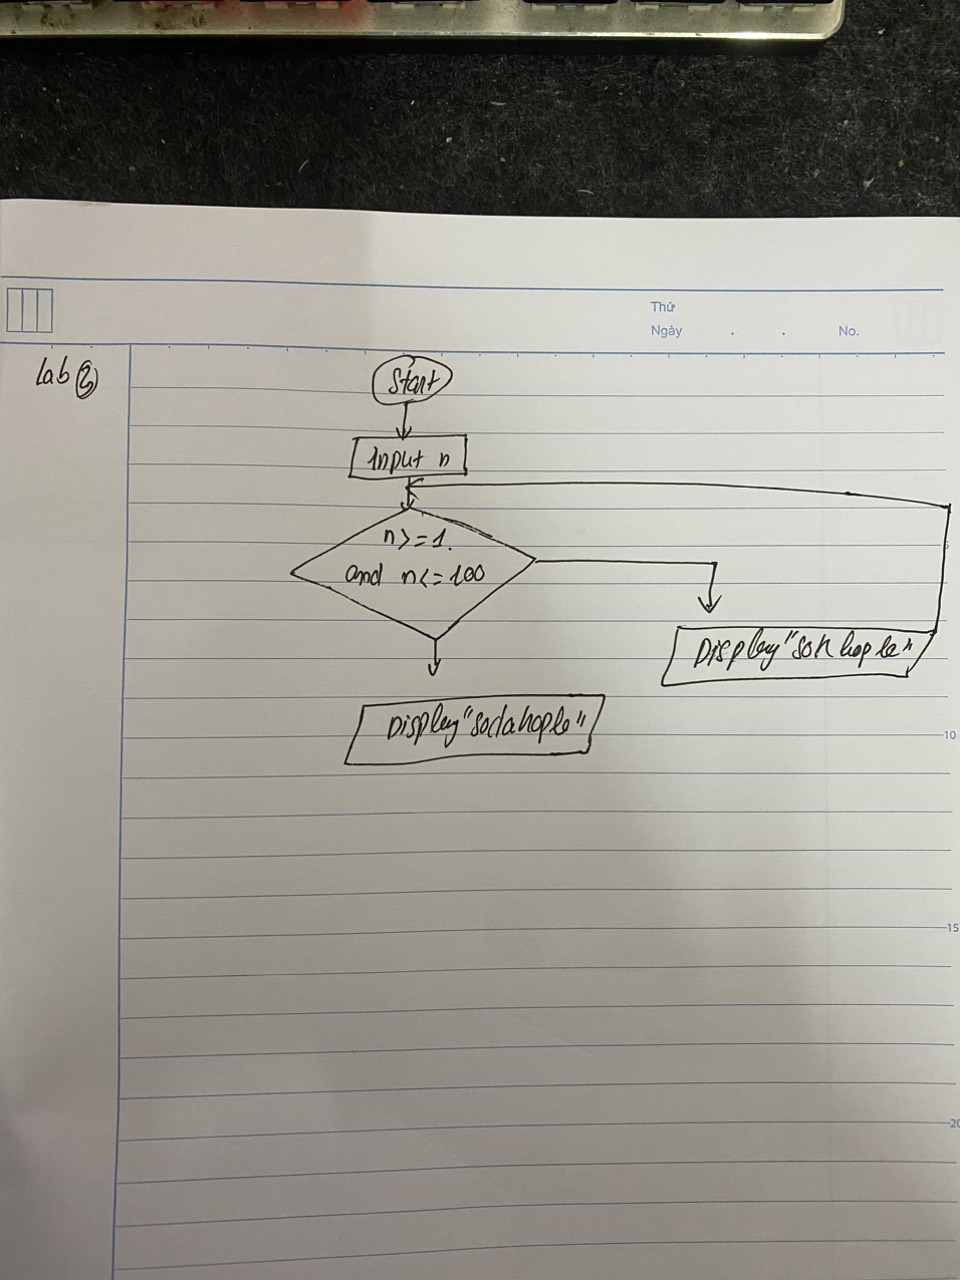 Thứ
Ngày . . No.
Lab 3
Start
Input n
n>=1.
and n<=100
Display "so k hop le"
Display "so da hop le"
5
10
15
20